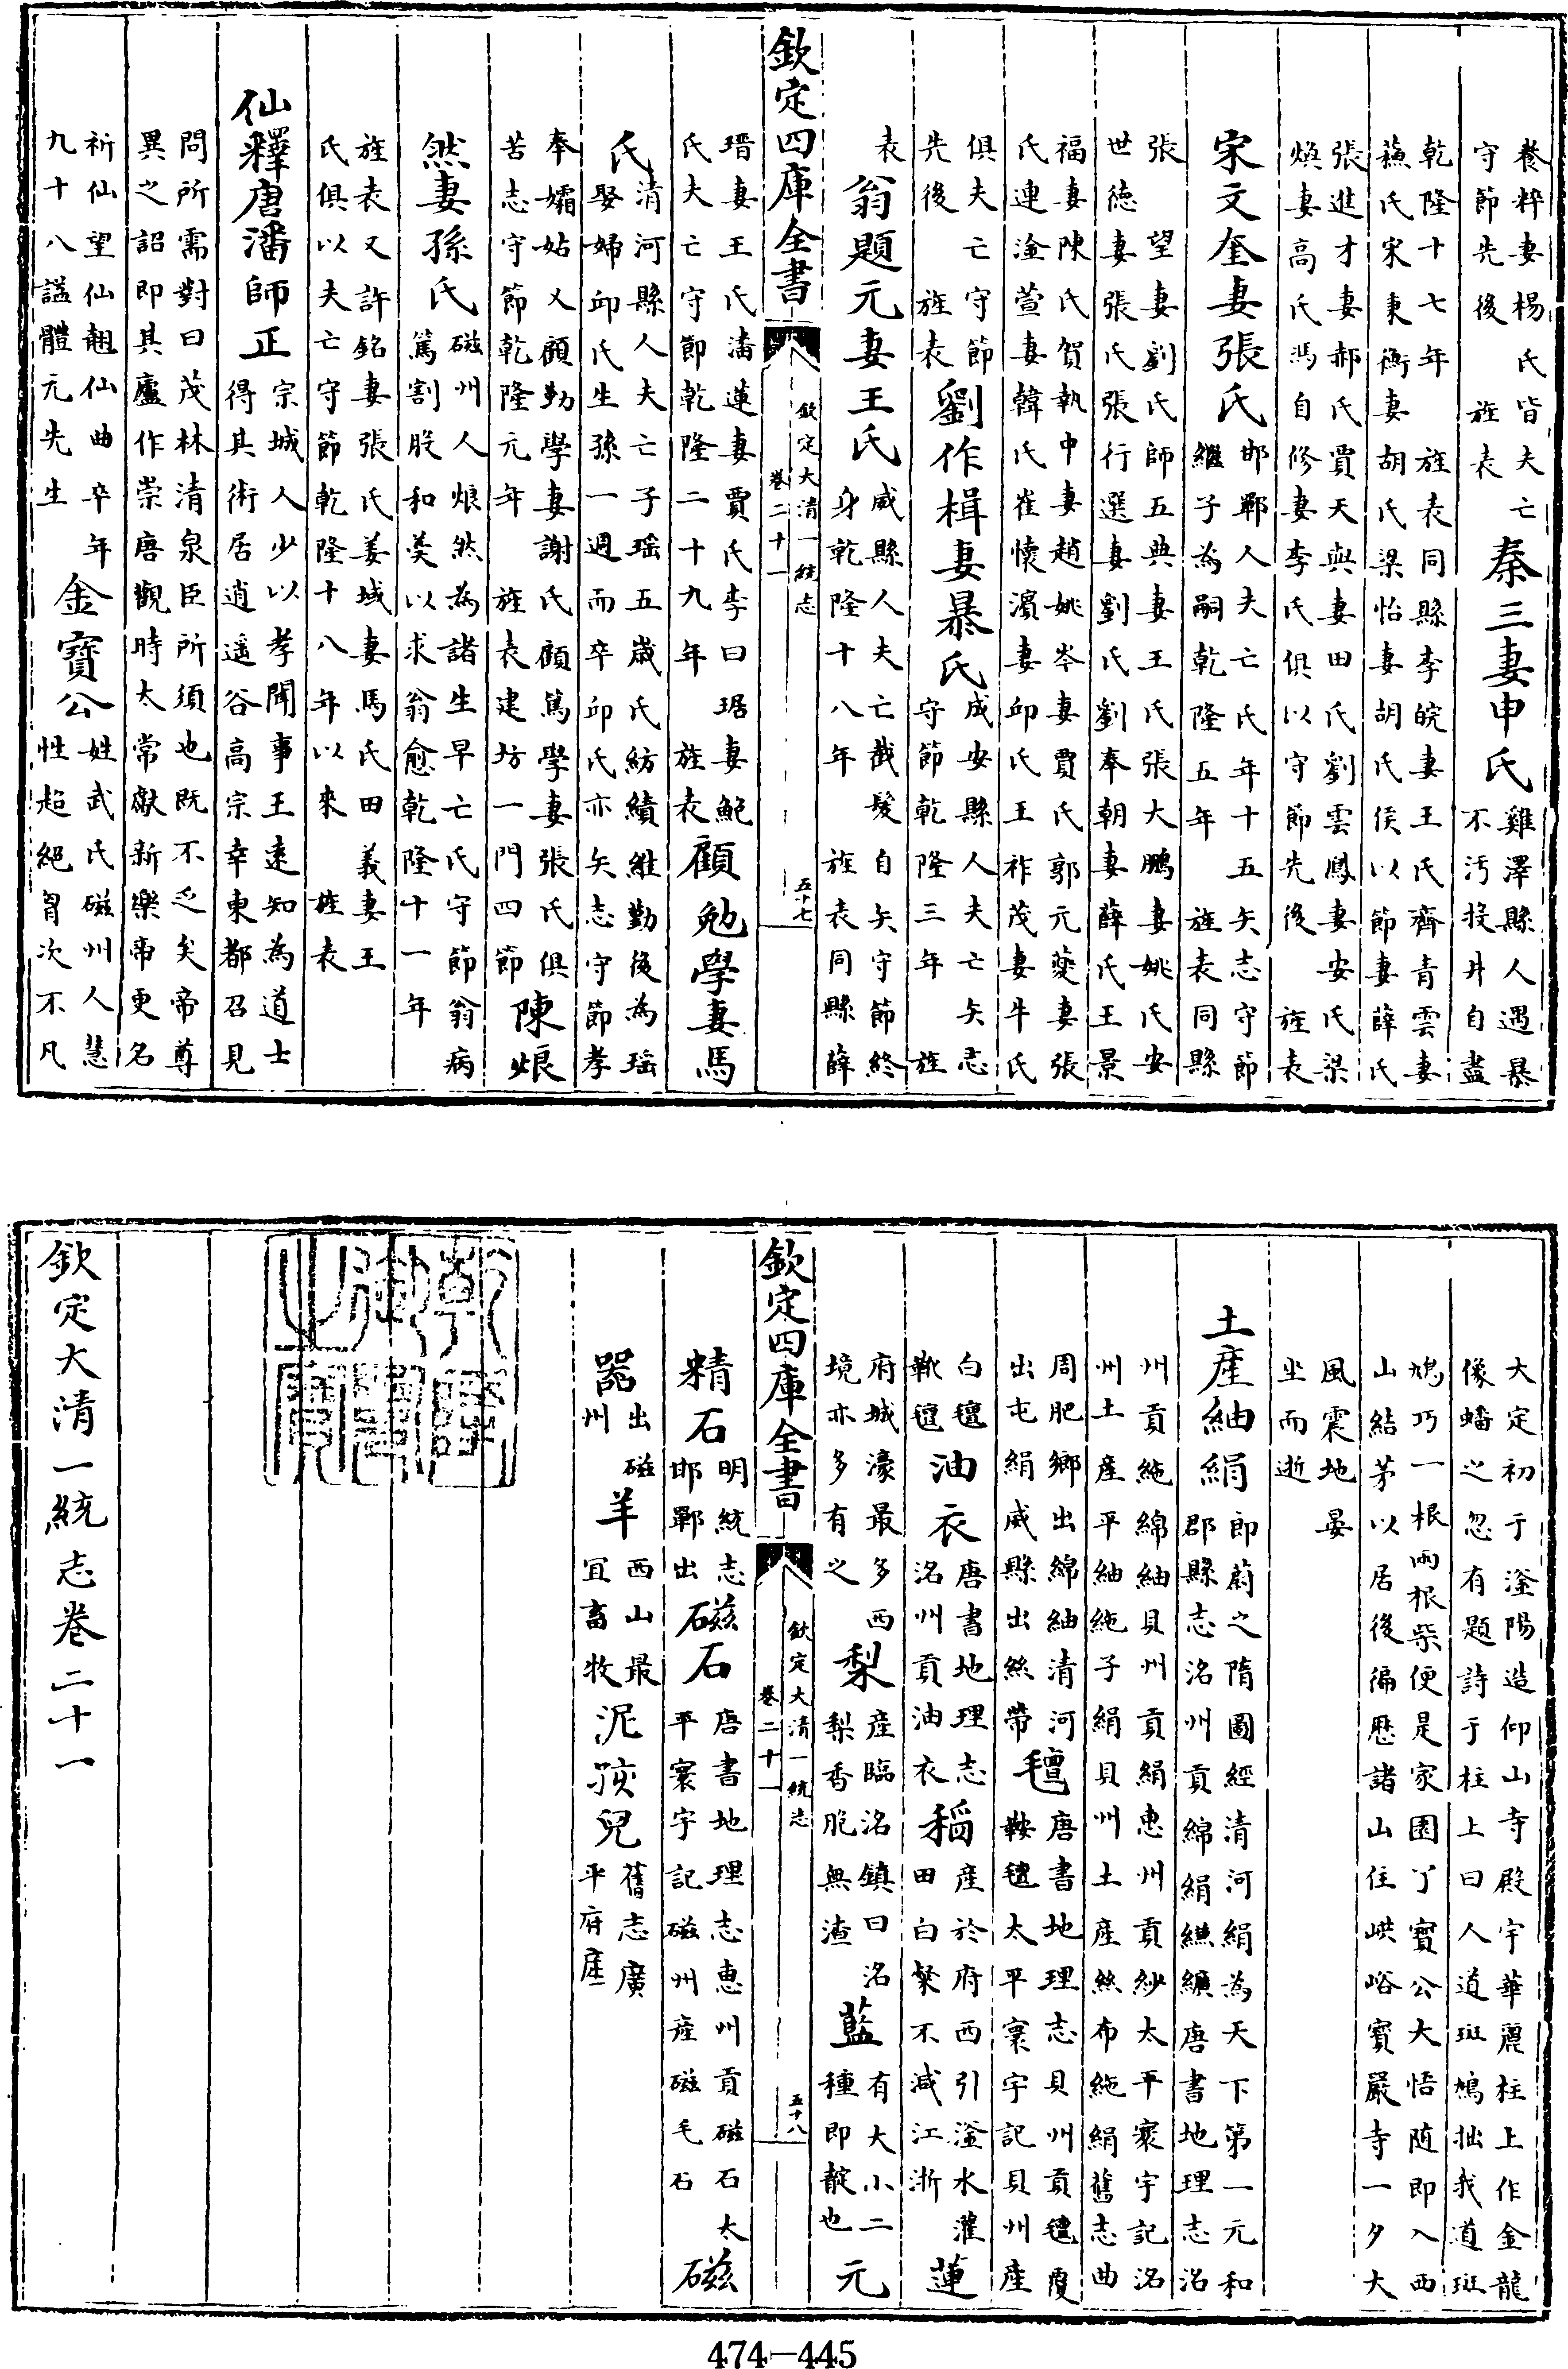 養粹妻楊氏皆夫亡
守節先後旌表
秦三妻申氏
雞澤縣人遇暴
不汚投井自盡
乾隆十七年旌表同縣李皖妻王氏齊青雲妻
蘓氏宋秉衡妻胡氏梁怡妻胡氏侯以節妻薛氏
張進才妻郝氏賈天與妻田氏劉雲鳳妻安氏梁
煥妻高氏馮自修妻李氏俱以守節先後旌表
宋文奎妻張氏
邯鄲人夫亡氏年十五矢志守節
繼子為嗣乾隆五年旌表同縣
張望妻劉氏師五典妻王氏張大鵬妻姚氏安
世德妻張氏張行選妻劉氏劉奉朝妻薛氏王景
福妻陳氏賀執中妻趙姚岑妻賈氏郭元夔妻張
氏連淦萱妻韓氏崔懷濵妻邱氏王祚茂妻牛氏
俱夫亡守節
先後旌表
劉作楫妻暴氏
成安縣人夫亡矢志
守節乾隆三年旌
表
翁題元妻王氏
威縣人夫亡截髮自矢守節終
身乾隆十八年旌表同縣薛
欽定四庫全書
欽定大清一統志
卷二十一
五十七
瑨妻王氏潘蓮妻賈氏李曰琚妻鮑
氏夫亡守節乾隆二十九年旌表
顧勉學妻馬
氏
清河縣人夫亡子瑶五歲氏紡績維勤後為瑶
娶婦邱氏生孫一週而卒邱氏亦矢志守節孝
奉孀姑又顧勤學妻謝氏顧篤學妻張氏俱
苦志守節乾隆元年旌表建坊一門四節
陳烺
然妻孫氏
磁州人烺然為諸生早亡氏守節翁病
篤割股和羮以求翁愈乾隆十一年
旌表又許銘妻張氏姜域妻馬氏田義妻王
氏俱以夫亡守節乾隆十八年以來旌表
仙釋唐潘師正
宗城人少以孝聞事王逺知為道士
得其術居逍遥谷高宗幸東都召見
問所需對曰茂林清泉臣所須也既不乏矣帝尊
異之詔即其廬作崇唐觀時太常獻新樂帝更名
祈仙望仙翹仙曲卒年
九十八諡體元先生
金寶公
姓武氏磁州人慧
性超絶胷次不凡
大定初于滏陽造仰山寺殿宇華麗柱上作金龍
像蟠之忽有題詩于柱上曰人道斑鳩拙我道斑
鳩巧一根兩根柴便是家園了寶公大悟随即入西
山結茅以居後徧歴諸山住峡峪寳嚴寺一夕大
風震地晏
坐而逝
土産紬絹
即蔚之隋圖經清河絹為天下第一元和
郡縣志洺州貢綿絹纁纊唐書地理志洺
州貢絁綿紬貝州貢絹惠州貢紗太平寰宇記洺
州土産平紬絁子絹貝州土産絲布絁絹舊志曲
周肥鄉出綿紬清河
出屯絹威縣出絲帶
氊
唐書地理志貝州貢氊覆
鞍氊太平寰宇記貝州產
白氊
靴氊
油衣
唐書地理志
洺州貢油衣
稻
産於府西引滏水灌
田白粲不減江浙
蓮
府城濠最多西
境亦多有之
梨
産臨洺鎮曰洺
梨香脆無渣
藍
有大小二
種即靛也
元
欽定四庫全書
欽定大清一統志
卷二十一
五十八
精石
明統志
邯鄲出
磁石
唐書地理志惠州貢磁石太
平寰宇記磁州産磁毛石
磁
器
出磁
州
羊
西山最
宜畜牧
泥孩兒
舊志廣
平府産
乾隆御覽之寶
欽定大清一統志卷二十一
474-445